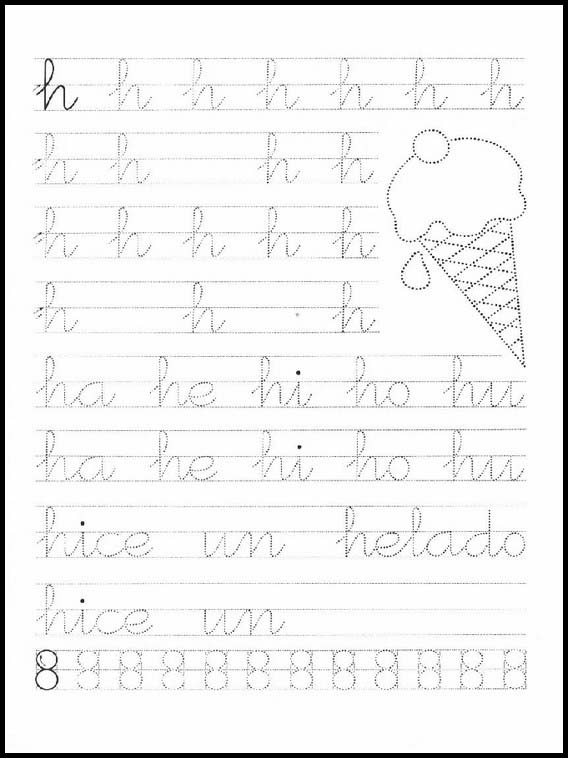 h h h h h h h
h h h h
h h h h h
h h h
ha he hi ho hu
ha he hi ho hu
hice un helado
hice un
8 8 8 8 8 8 8 8 8 8 8 8